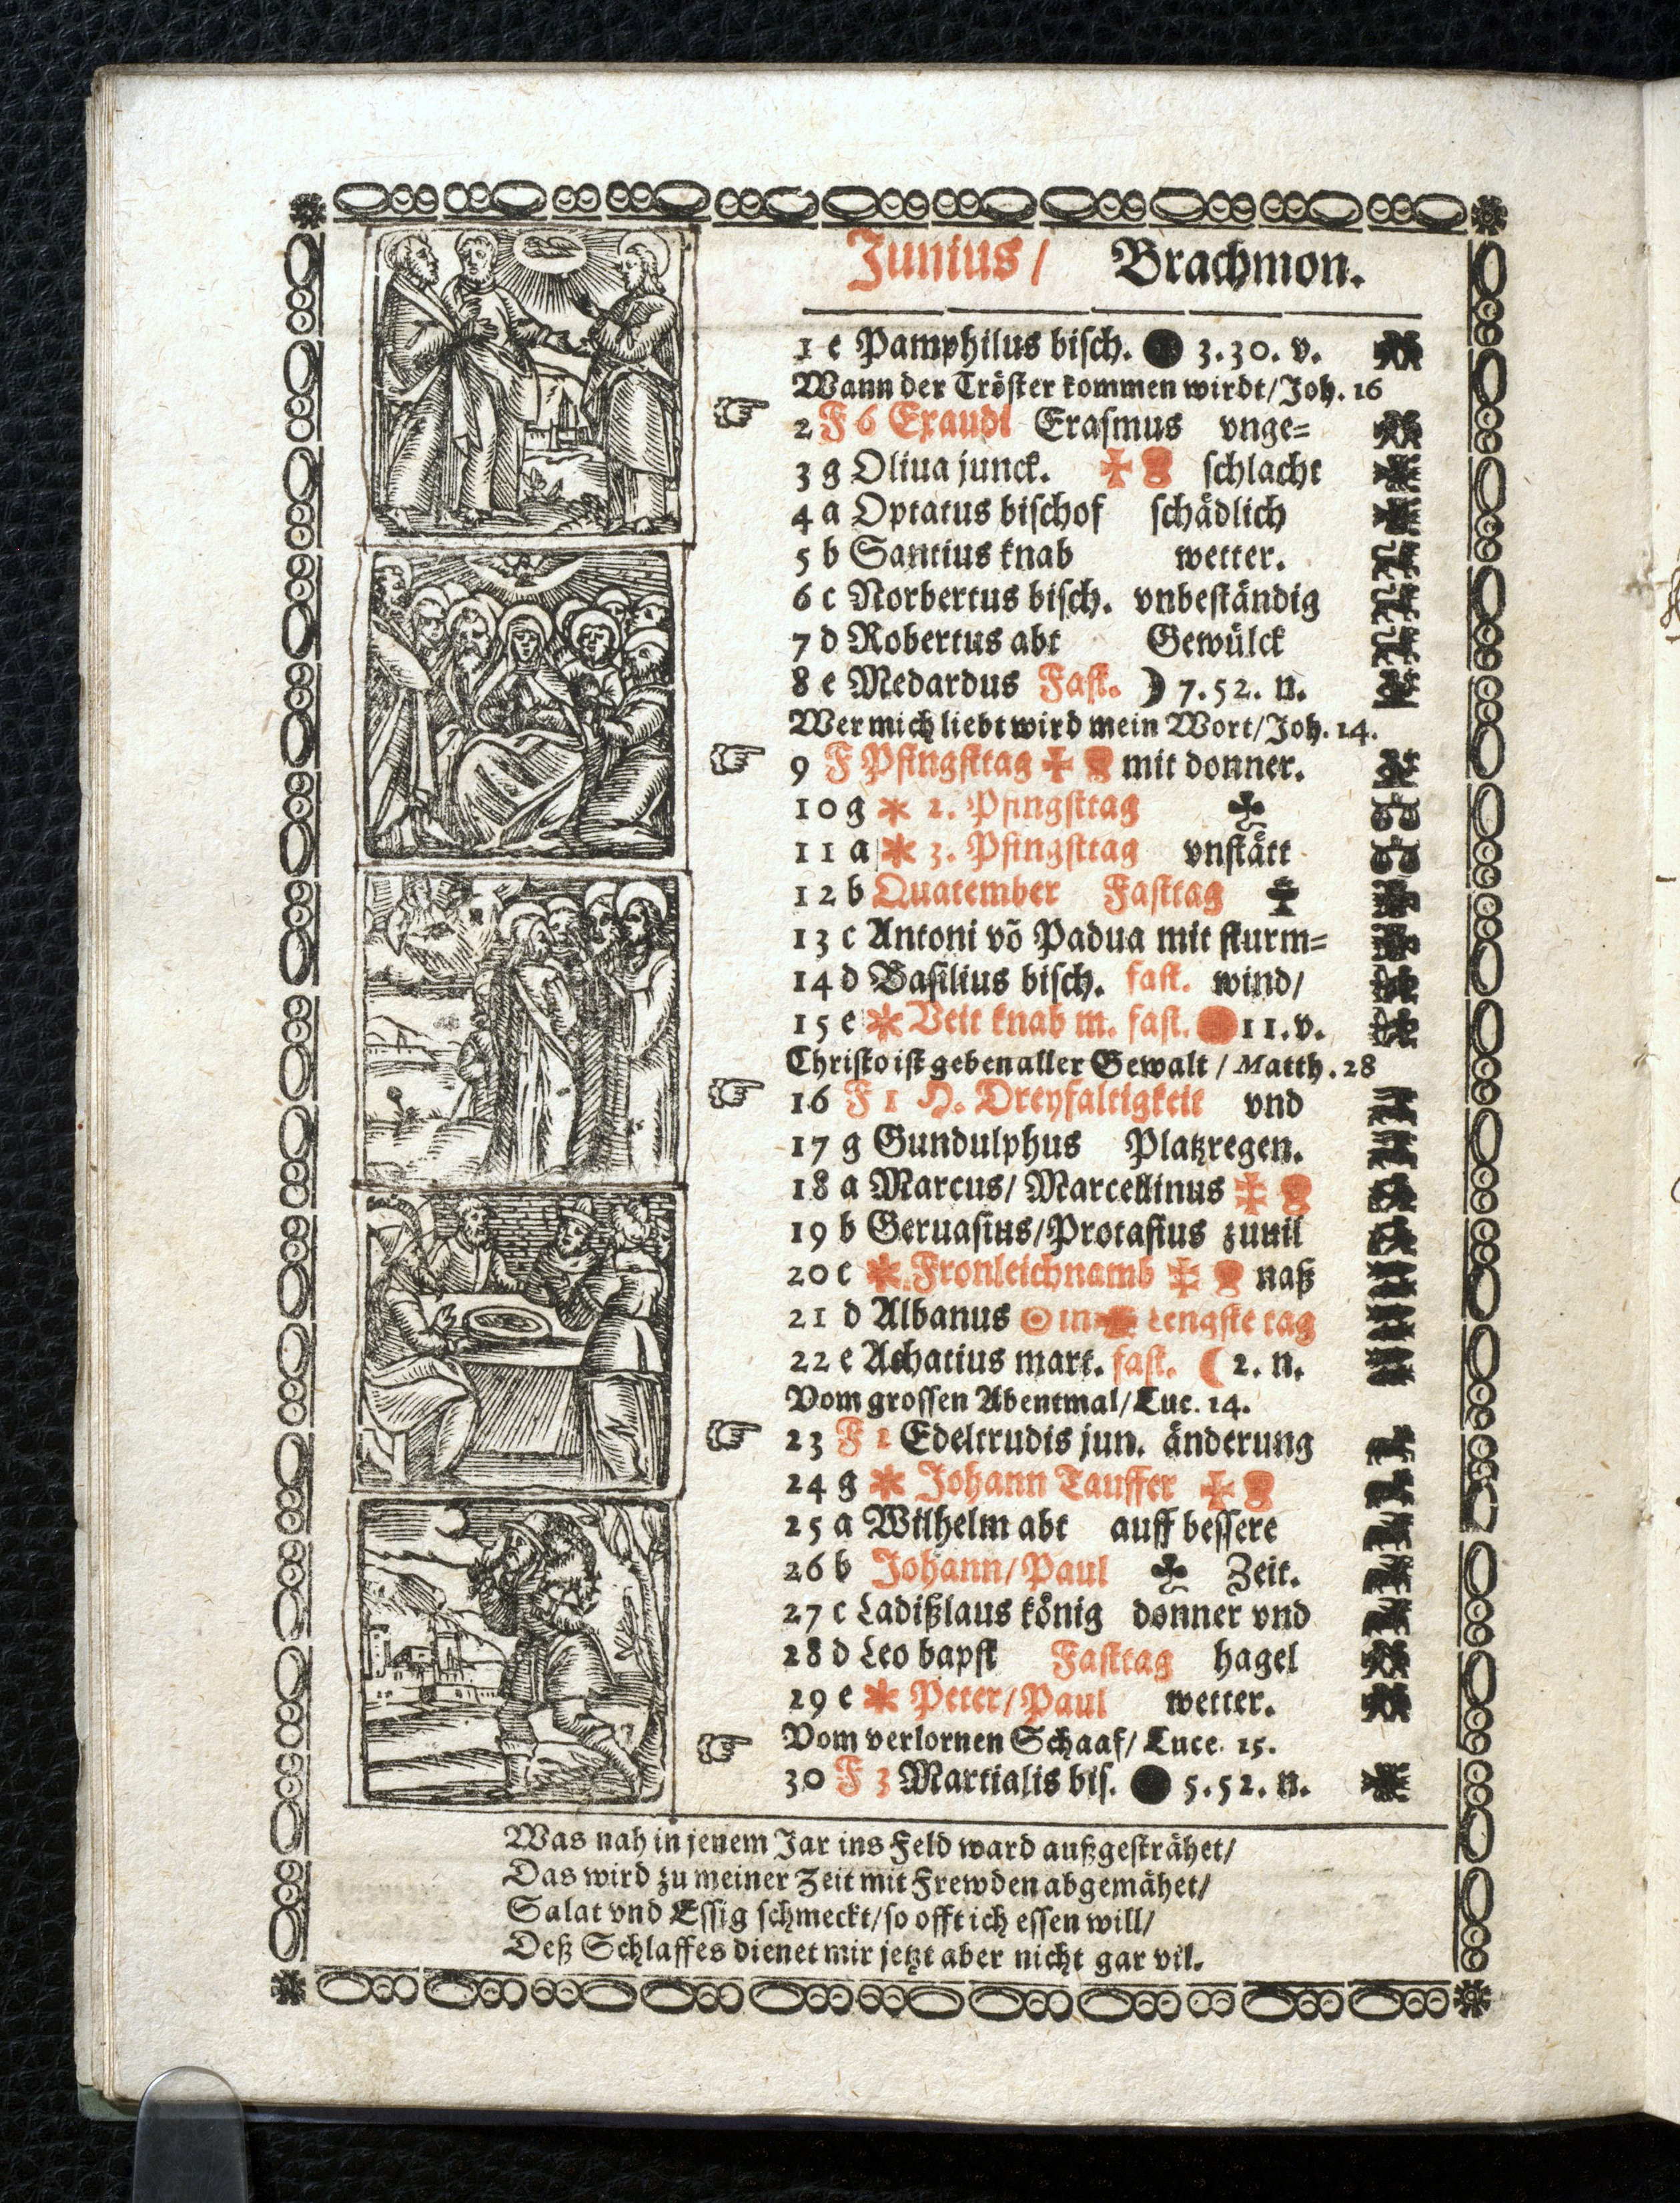 Junius/ Brachmon.
1 e Pamphilus bisch. 3.30. v.
Wann der Tröster kommen wirdt/Joh. 16
2 F 6 Exaudi Erasmus vnge=
3 g Oliua junck. schlacht
4 a Optatus bischof schädlich
5 b Santius knab wetter.
6 c Norbertus bisch. vnbeständig
7 d Robertus abt Gewülck
8 e Medardus Fast. 7.52. n.
Wer mich liebt wird mein Wort/Joh. 14.
9 F Pfingsttag mit donner.
10 g * 2. Pfingsttag
11 a * 3. Pfingsttag vnstätt
12 b Quatember Fasttag
13 c Antoni võ Padua mit sturm=
14 d Basilius bisch. fast. wind/
15 e * Veit knab m. fast. 11.v.
Christo ist geben aller Gewalt / Matth. 28
16 F 1 H. Dreyfaltigkeit vnd
17 g Gundulphus Platzregen.
18 a Marcus/ Marcellinus
19 b Geruasius/Protasius zuuil
20 c * Fronleichnamb naß
21 d Albanus ☉ in Lengste tag
22 e Achatius mart. fast. 2. n.
Vom grossen Abentmal/Luc. 14.
23 F 2 Edeltrudis jun. änderung
24 g * Johann Tauffer
25 a Wilhelm abt auff bessere
26 b Johann/Paul Zeit.
27 c Ladißlaus könig donner vnd
28 d Leo bapst Fasttag hagel
29 e * Peter/Paul wetter.
Vom verlornen Schaaf/ Luce. 15.
30 F 3 Martialis bis. 5.52. n.
Was nah in jenem Jar ins Feld ward außgesträhet/
Das wird zu meiner Zeit mit Frewden abgemähet/
Salat vnd Essig schmeckt/so offt ich essen will/
Deß Schlaffes dienet mir jetzt aber nicht gar vil.